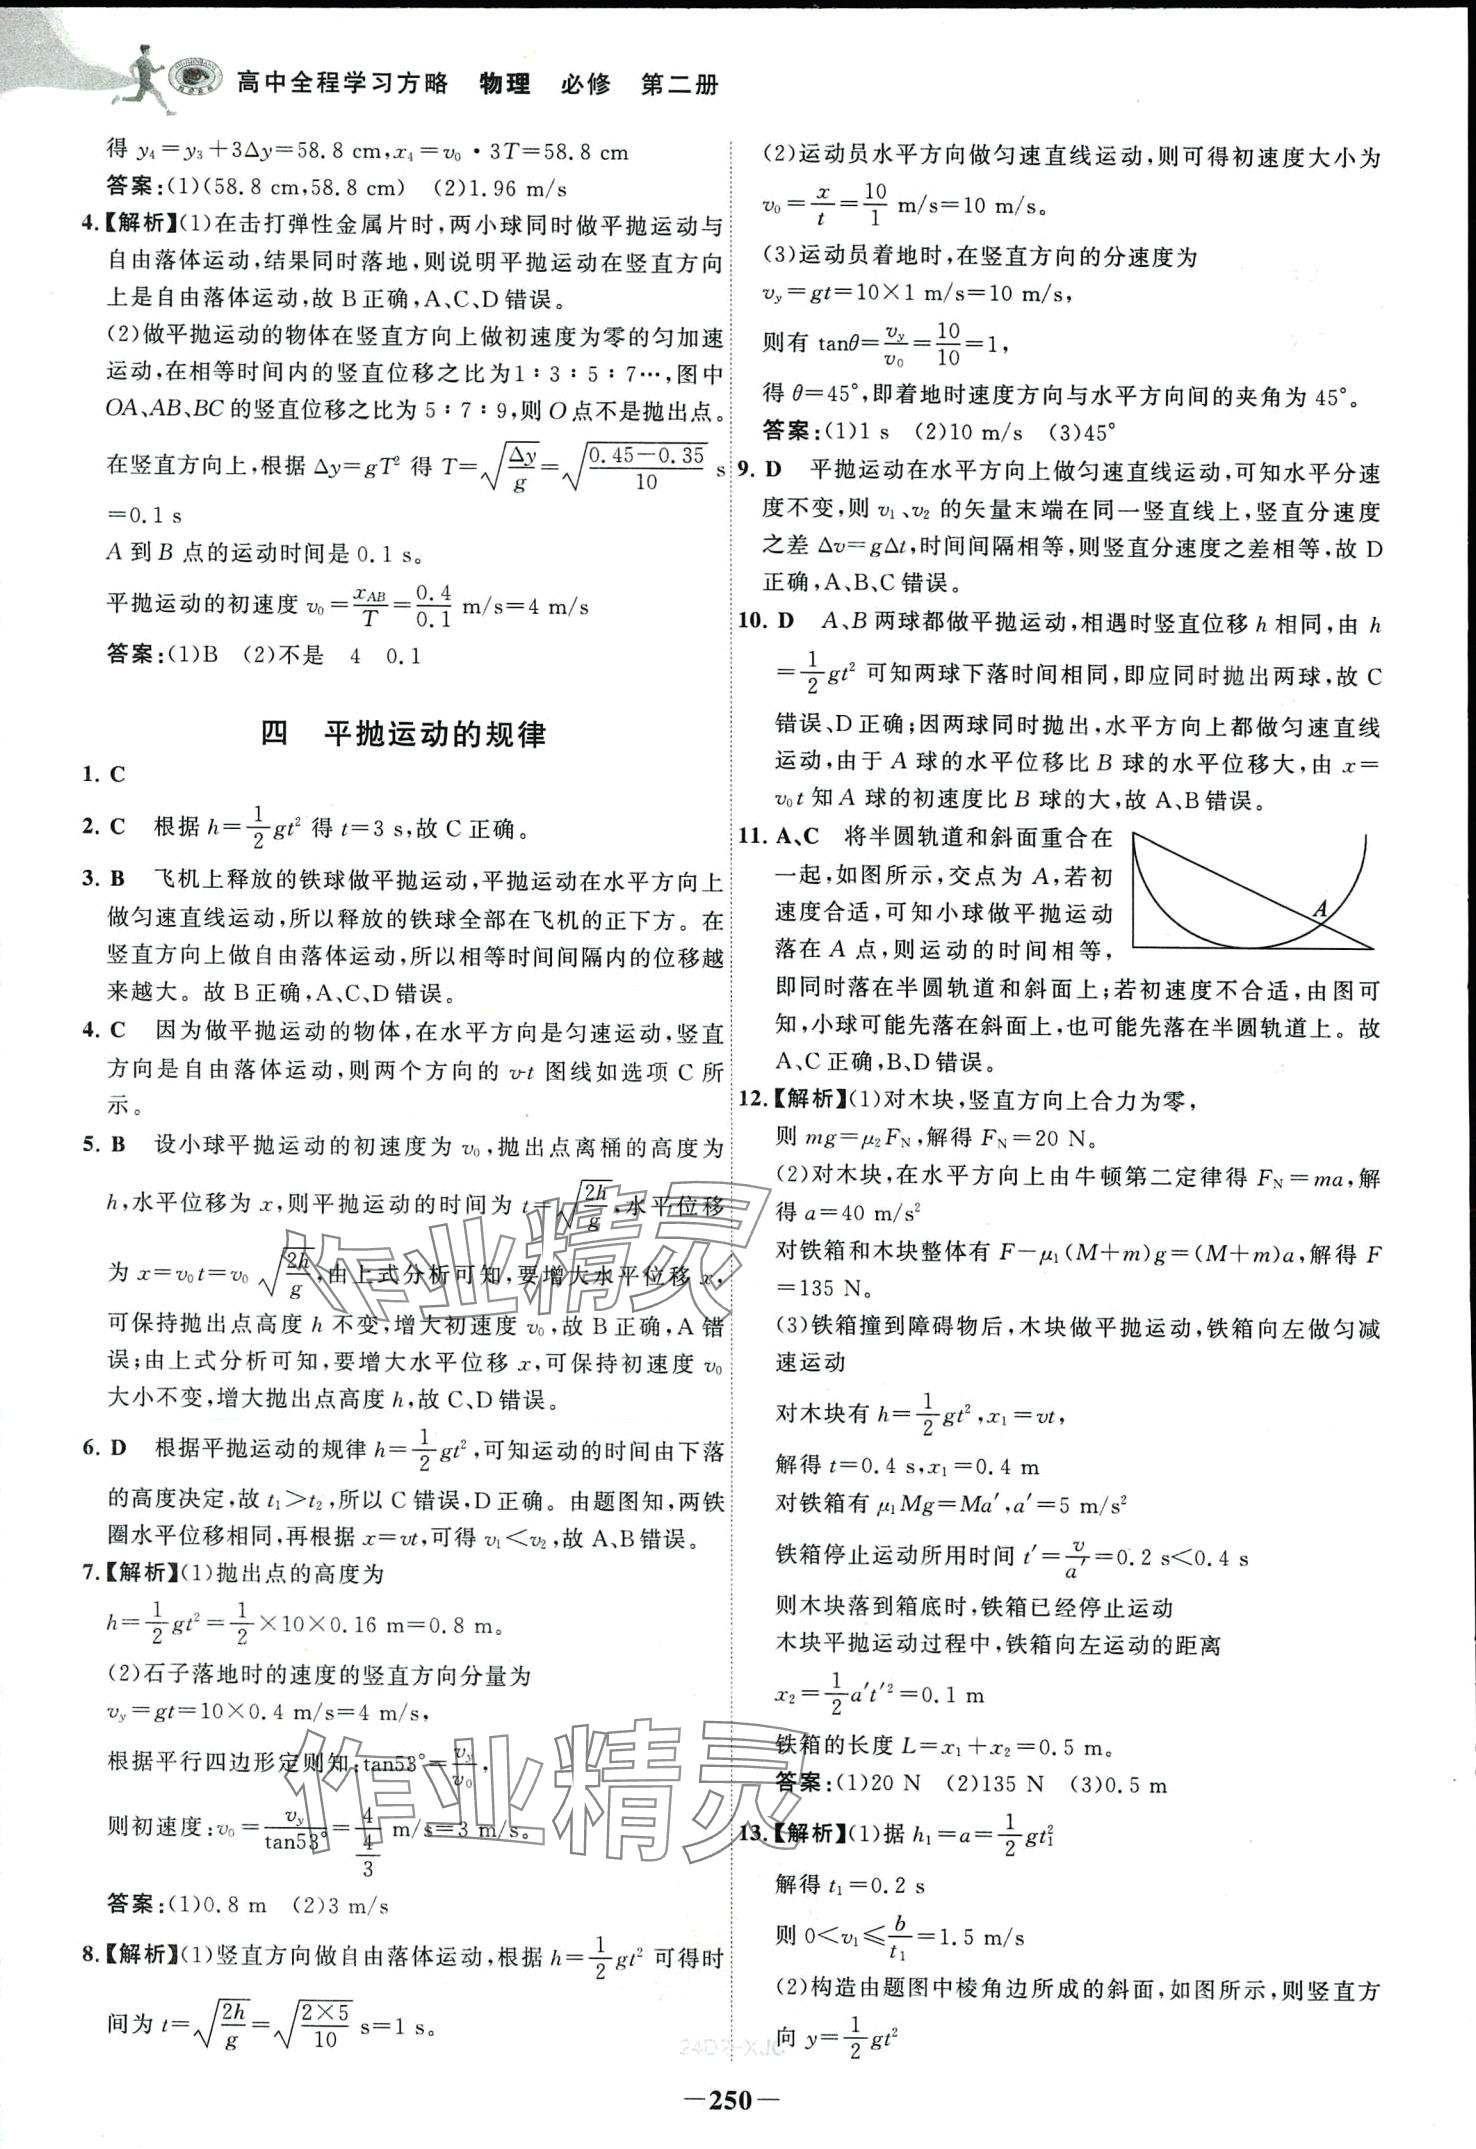 高中全程学习方略 物理 必修 第二册
得 y₄=y₃+3Δy=58.8 cm,x₄=v₀·3T=58.8 cm
答案:(1)(58.8 cm,58.8 cm) (2)1.96 m/s
4.【解析】(1)在击打弹性金属片时,两小球同时做平抛运动与
自由落体运动,结果同时落地,则说明平抛运动在竖直方向
上是自由落体运动,故 B正确,A、C、D错误。
(2)做平抛运动的物体在竖直方向上做初速度为零的匀加速
运动,在相等时间内的竖直位移之比为1∶3∶5∶7…,图中
OA、AB、BC的竖直位移之比为 5∶7∶9,则 O 点不是抛出点。
在竖直方向上,根据 Δy=gT² 得 T=√(Δy/g)=√((0.45-0.35)/10) s
=0.1 s
A 到 B 点的运动时间是 0.1 s。
平抛运动的初速度 v₀=x_AB/T=0.4/0.1 m/s=4 m/s
答案:(1)B (2)不是 4 0.1
四 平抛运动的规律
1. C
2. C 根据 h=1/2gt² 得 t=3 s,故 C正确。
3. B 飞机上释放的铁球做平抛运动,平抛运动在水平方向上
做匀速直线运动,所以释放的铁球全部在飞机的正下方。在
竖直方向上做自由落体运动,所以相等时间间隔内的位移越
来越大。故 B正确,A、C、D错误。
4. C 因为做平抛运动的物体,在水平方向是匀速运动,竖直
方向是自由落体运动,则两个方向的 v-t 图线如选项 C 所
示。
5. B 设小球平抛运动的初速度为 v₀,抛出点离桶的高度为
h,水平位移为 x,则平抛运动的时间为 t=√(2h/g),水平位移
为 x=v₀t=v₀√(2h/g),由上式分析可知,要增大水平位移 x,
可保持抛出点高度 h 不变,增大初速度 v₀,故 B正确,A 错
误;由上式分析可知,要增大水平位移 x,可保持初速度 v₀
大小不变,增大抛出点高度 h,故 C、D错误。
6. D 根据平抛运动的规律 h=1/2gt²,可知运动的时间由下落
的高度决定,故 t₁>t₂,所以 C错误,D正确。由题图知,两铁
圈水平位移相同,再根据 x=vt,可得 v₁<v₂,故 A、B错误。
7.【解析】(1)抛出点的高度为
h=1/2gt²=1/2×10×0.16 m=0.8 m。
(2)石子落地时的速度的竖直方向分量为
v_y=gt=10×0.4 m/s=4 m/s,
根据平行四边形定则知:tan53°=v_y/v₀,
则初速度:v₀=v_y/tan53°=4/(4/3) m/s=3 m/s。
答案:(1)0.8 m (2)3 m/s
8.【解析】(1)竖直方向做自由落体运动,根据 h=1/2gt² 可得时
间为 t=√(2h/g)=√((2×5)/10) s=1 s。
(2)运动员水平方向做匀速直线运动,则可得初速度大小为
v₀=x/t=10/1 m/s=10 m/s。
(3)运动员着地时,在竖直方向的分速度为
v_y=gt=10×1 m/s=10 m/s,
则有 tanθ=v_y/v₀=10/10=1,
得 θ=45°,即着地时速度方向与水平方向间的夹角为 45°。
答案:(1)1 s (2)10 m/s (3)45°
9. D 平抛运动在水平方向上做匀速直线运动,可知水平分速
度不变,则 v₁、v₂ 的矢量末端在同一竖直线上,竖直分速度
之差 Δv=gΔt,时间间隔相等,则竖直分速度之差相等,故 D
正确,A、B、C错误。
10. D A、B两球都做平抛运动,相遇时竖直位移 h 相同,由 h
=1/2gt² 可知两球下落时间相同,即应同时抛出两球,故 C
错误、D正确;因两球同时抛出,水平方向上都做匀速直线
运动,由于 A 球的水平位移比 B 球的水平位移大,由 x=
v₀t 知 A 球的初速度比 B 球的大,故 A、B错误。
11. A、C 将半圆轨道和斜面重合在
一起,如图所示,交点为 A,若初
速度合适,可知小球做平抛运动
落在 A 点,则运动的时间相等,
A
即同时落在半圆轨道和斜面上;若初速度不合适,由图可
知,小球可能先落在斜面上,也可能先落在半圆轨道上。故
A、C正确,B、D错误。
12.【解析】(1)对木块,竖直方向上合力为零,
则 mg=μ₂F_N,解得 F_N=20 N。
(2)对木块,在水平方向上由牛顿第二定律得 F_N=ma,解
得 a=40 m/s²
对铁箱和木块整体有 F-μ₁(M+m)g=(M+m)a,解得 F
=135 N。
(3)铁箱撞到障碍物后,木块做平抛运动,铁箱向左做匀减
速运动
对木块有 h=1/2gt²,x₁=vt,
解得 t=0.4 s,x₁=0.4 m
对铁箱有 μ₁Mg=Ma′,a′=5 m/s²
铁箱停止运动所用时间 t′=v/a′=0.2 s<0.4 s
则木块落到箱底时,铁箱已经停止运动
木块平抛运动过程中,铁箱向左运动的距离
x₂=1/2a′t′²=0.1 m
铁箱的长度 L=x₁+x₂=0.5 m。
答案:(1)20 N (2)135 N (3)0.5 m
13.【解析】(1)据 h₁=a=1/2gt₁²
解得 t₁=0.2 s
则 0<v₁≤b/t₁=1.5 m/s
(2)构造由题图中棱角边所成的斜面,如图所示,则竖直方
向 y=1/2gt²
作业精灵
作业精灵
—250—